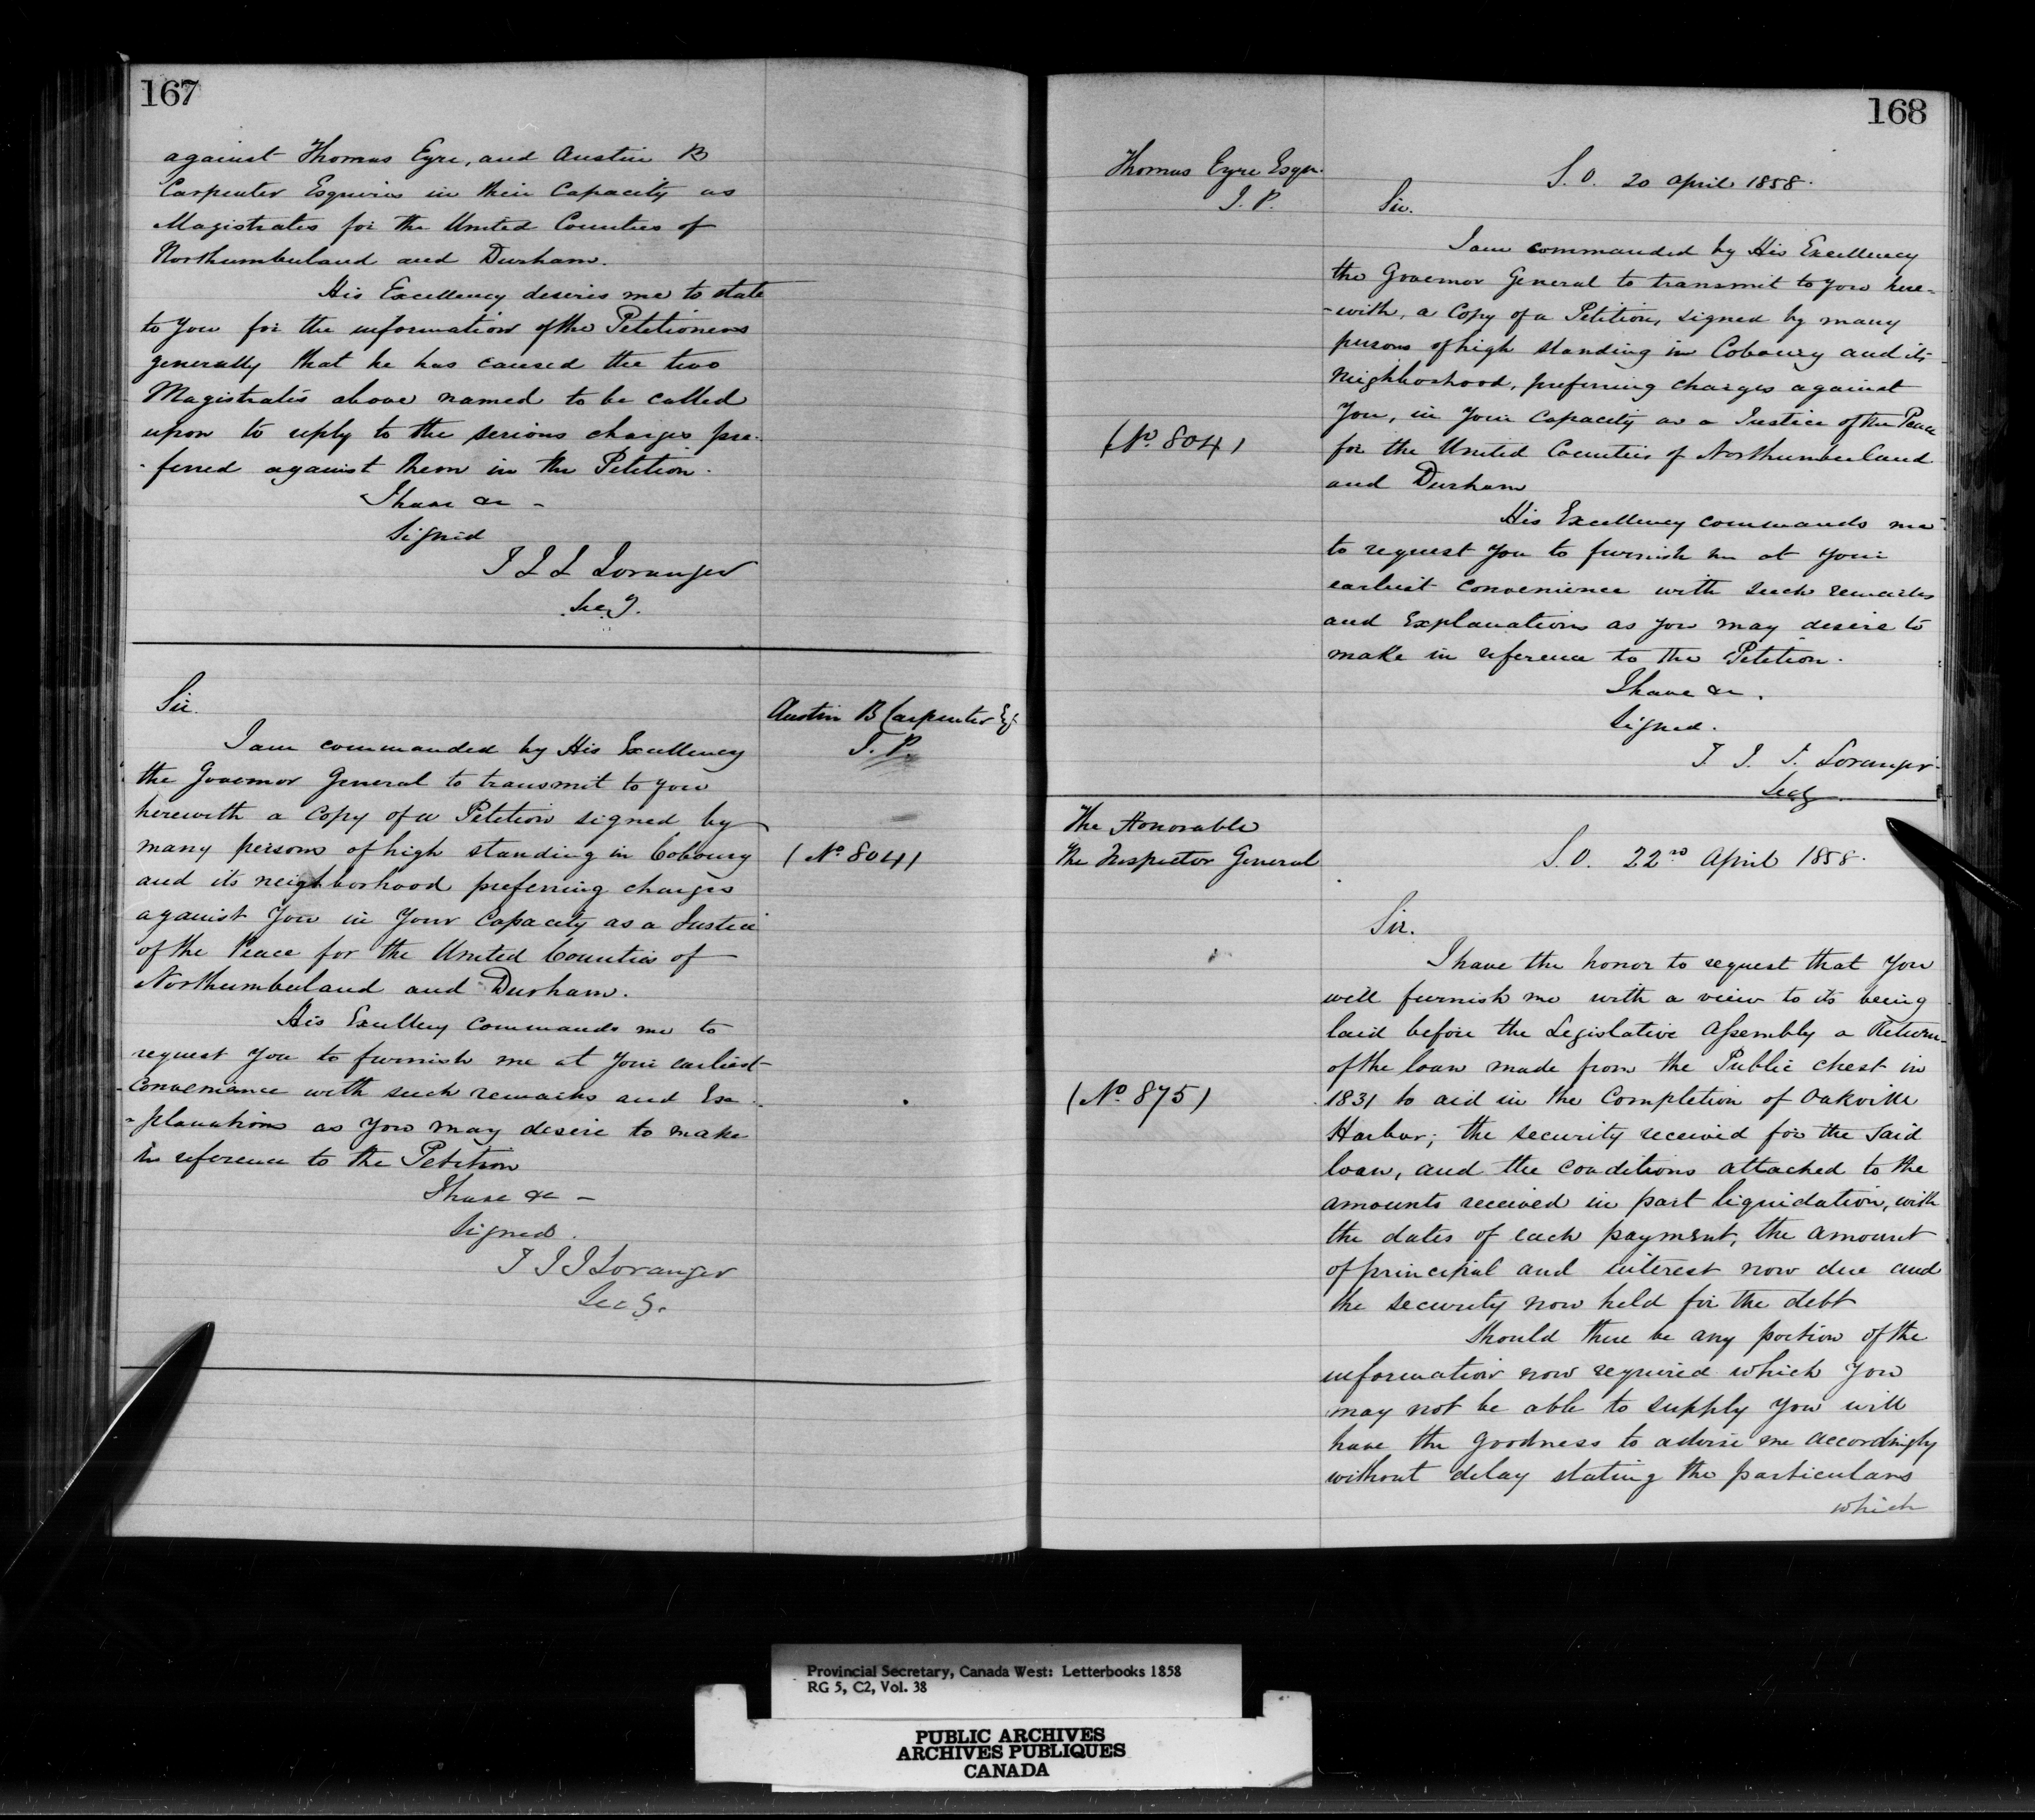 167
against Thomas Eyre, and Austin B
Carpenter Esquires in their Capacity as
Magistrates for the United Counties of
Northumberland and Durham.
His Excellency desires me to state
to you for the information of the Petitioners
generally that he has caused the two
Magistrates above named to be called
upon to reply to the serious charges pre-
-ferred against them in the Petition.
I have &c -
Signed
T J J Loranger
Secy.
Sir.
Austin B Carpenter Esq
J. P.
I am commanded by His Excellency
the Governor General to transmit to you
herewith a Copy of a Petition signed by
many persons of high standing in Cobourg
(No 804)
and its neighborhood preferring charges
against you in your Capacity as a Justice
of the Peace for the United Counties of
Northumberland and Durham.
His Excellency commands me to
request you to furnish me at your earliest
convenience with such remarks and Ex-
-planations as you may desire to make
in reference to the Petition
I have &c -
Signed.
T J J Loranger
Secy.
168
Thomas Eyre Esqr.
J. P.
S. O. 20 April 1858.
Sir.
I am commanded by His Excellency
the Governor General to transmit to you here-
-with, a Copy of a Petition, signed by many
persons of high standing in Cobourg and its
Neighborhood, preferring charges against
You, in your Capacity as a Justice of the Peace
(No 804)
for the United Counties of Northumberland
and Durham
His Excellency commands me
to request you to furnish me at your
earliest convenience with such remarks
and Explanations as you may desire to
make in reference to the Petition.
I have &c.
Signed.
T. J. J. Loranger
Secy
The Honorable
The Inspector General
S. O. 22nd April 1858.
Sir.
I have the honor to request that you
will furnish me with a view to its being
laid before the Legislative Assembly a Return
of the loan made from the Public chest in
(No 875)
1831 to aid in the Completion of Oakville
Harbor; the security received for the said
loan, and the conditions attached to the
amounts received in part liquidation, with
the dates of each payment, the amount
of principal and interest now due and
the security now held for the debt
Should there be any portion of the
information now required which you
may not be able to supply you will
have the goodness to advise me accordingly
without delay stating the particulars
which
Provincial Secretary, Canada West: Letterbooks 1858
RG 5, C2, Vol. 38
PUBLIC ARCHIVES
ARCHIVES PUBLIQUES
CANADA